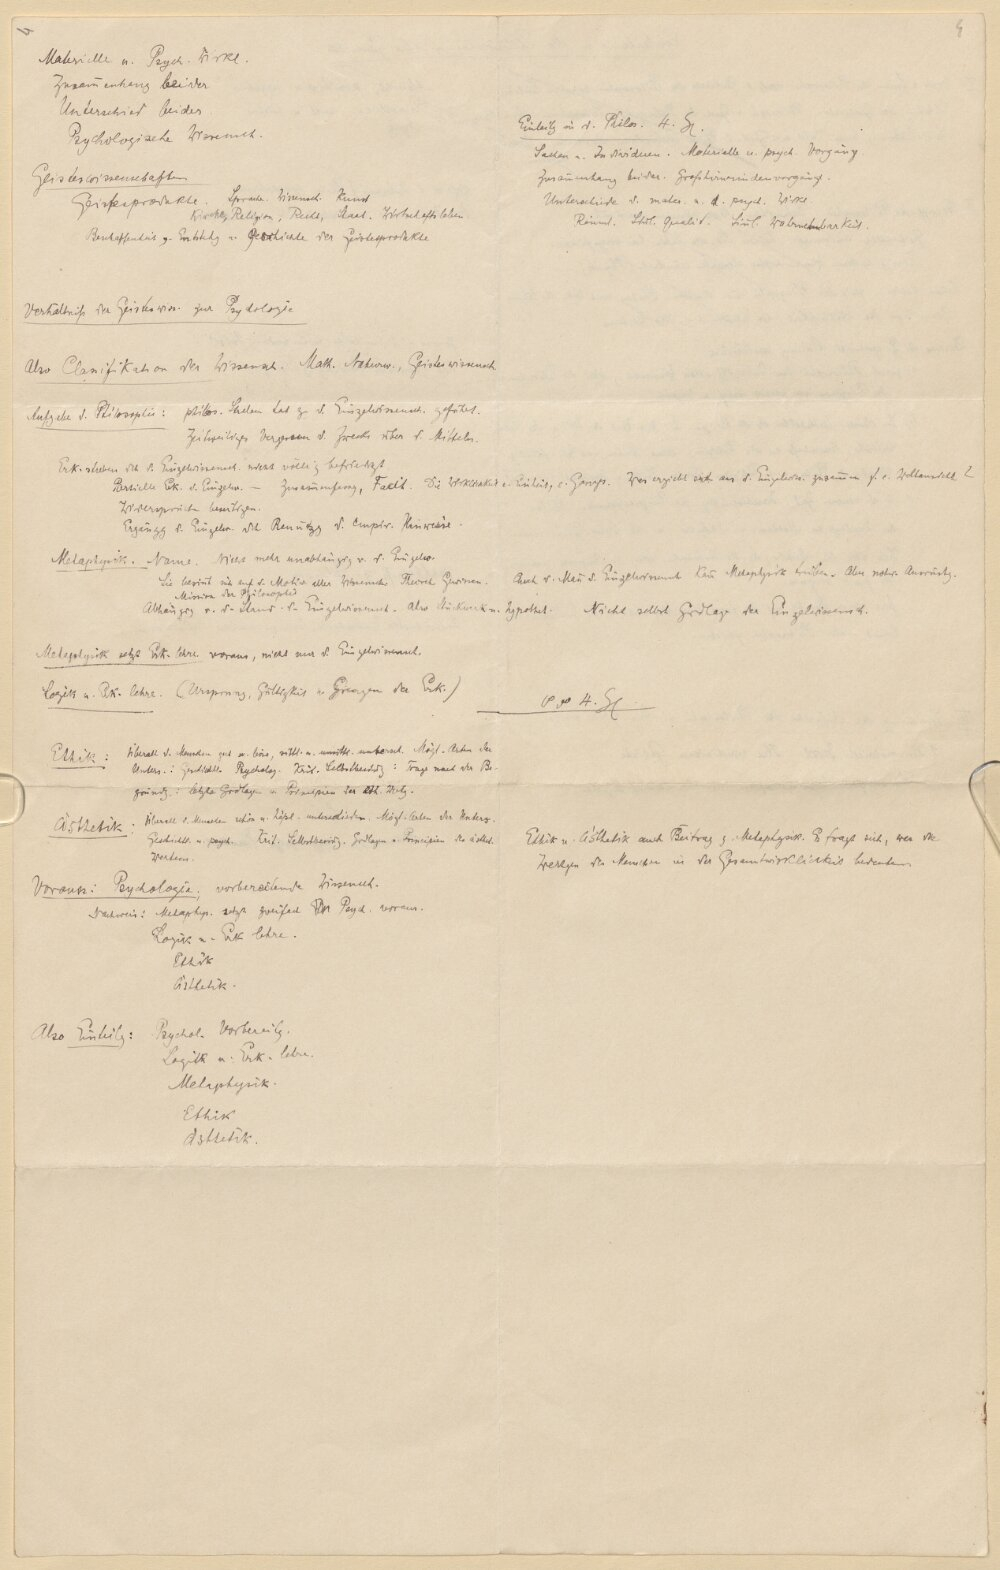 4
Materielle u. Psych. Wirkl.
Zusammenhang beider
Unterschied beider.
Psychologische Wissensch.
Geisteswissenschaften
Geistesprodukte. Sprache. Wissensch. Kunst
Religion, Recht, Staat. Wirtschaftsleben.
Beschaffenheit u. Entstehg u. Geschichte der Geistesprodukte
Einleitg in d. Philos. 4. St.
Sachen u. Individuen. Materielle u. psych. Vorgäng.
Zusammenhang beider. Großhirnrindenvorgäng.
Unterschiede d. mater. u. d. psych. Wirkl.
Räuml. Sinl. Qualit. Sinl. Wahrnehmbarkeit.
Verhältniß der Geisteswiss. zur Psychologie
Also Classifikation der Wissensch. Math. Naturw., Geisteswissensch.
Aufgabe d. Philosophie: philos. Streben hat z. d. Einzelwissensch. geführt.
Zeitweiliges Vergessen d. Zwecks über d. Mitteln.
Erk.streben dch d. Einzelwissensch. nicht völlig befriedigt
Partielle Erk. d. Einzelw. — Zusammenhang, Facit. Die Wirklichkeit e. Einheit, e. Ganzes. Was ergiebt sich aus d. Einzelwiss. zusammen f. e. Weltansicht?
Widersprüche beseitigen.
Ergänzg d. Einzelw. dch Benutzg d. empir. Hinweise.
Metaphysik. Name. Nicht mehr unabhängig v. d. Einzelw.
Sie besinnt sich auf d. Motiv aller Wissensch. Auch d. Man d. Einzelwissensch kan Metaphysik treiben. Aber notw. Ausrüstg.
Mission der Philosophie
Abhängig v. d. Stand d. Einzelwissensch. Also Stückwerk u. hypothet. Nicht selbst Grdlage der Einzelwissensch.
Metaphysik setzt Erk.lehre voraus, nicht nur d. Einzelwissensch.
Logik u. Erk.lehre. (Ursprung, Gültigkeit u. Grenzen der Erk.)
4. St.
Ethik: Überall d. Menschen gut u. böse, sittl. u. unsittl. untersch. Mögl. Arten der
Unters.: Geschichtl. Psycholog. Krit. Selbstbesinng: Frage nach der Be-
gründg.: letzte Grdlagen u. Principien der eth. Wertg.
Ästhetik: Überall d. Menschen schön u. hässl. unterschieden. Mögl. Arten der Unters.
Geschichtl. u. psych. Krit. Selbstbesinng. Grdlagen u. Principien des ästhet.
Wertens.
Ethik u. Ästhetik auch Beitrag z. Metaphysik. Es fragt sich, was die
Wertgen der Menschen in der Gesamtwirklichkeit bedeuten
Voraus: Psychologie, vorbereitende Wissensch.
Nachweis: Metaphys. setzt zweifach Psych. voraus.
Logik u. Erk.lehre.
Ethik
Ästhetik.
Also Einteilg: Psychol. Vorbereitg.
Logik u. Erk.lehre.
Metaphysik.
Ethik
Ästhetik.